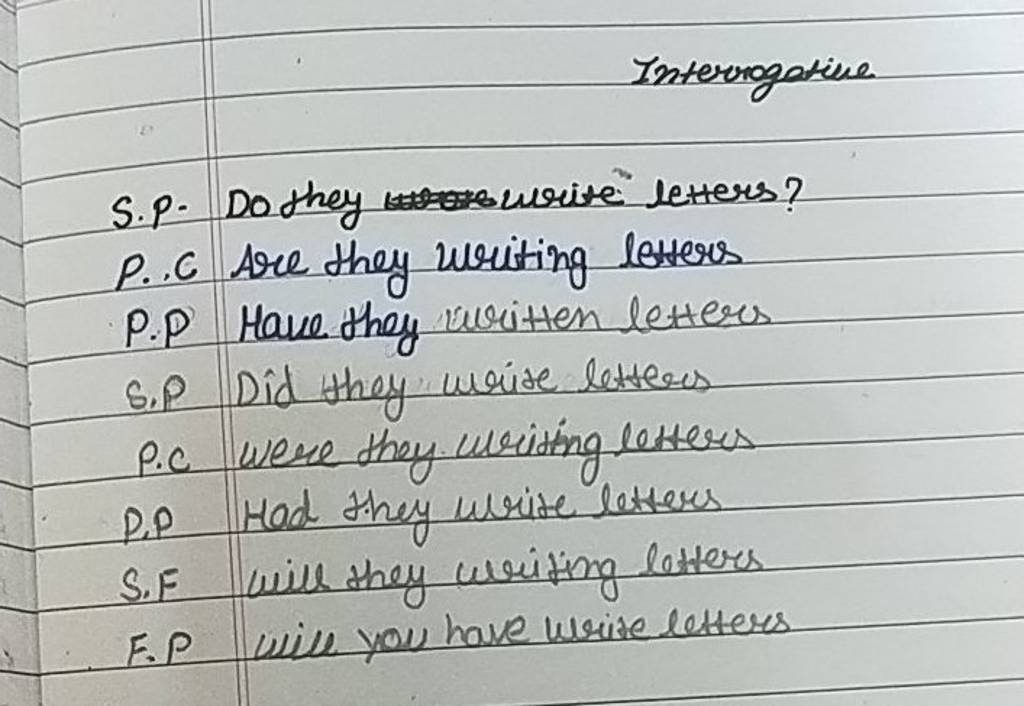 Interrogative
S.P- Do they write letters?
P.C Are they writing letters
P.P Have they written letters
S.P Did they write letters
P.C were they writing letters
P.P Had they write letters
S.F will they writing letters
F.P will you have write letters